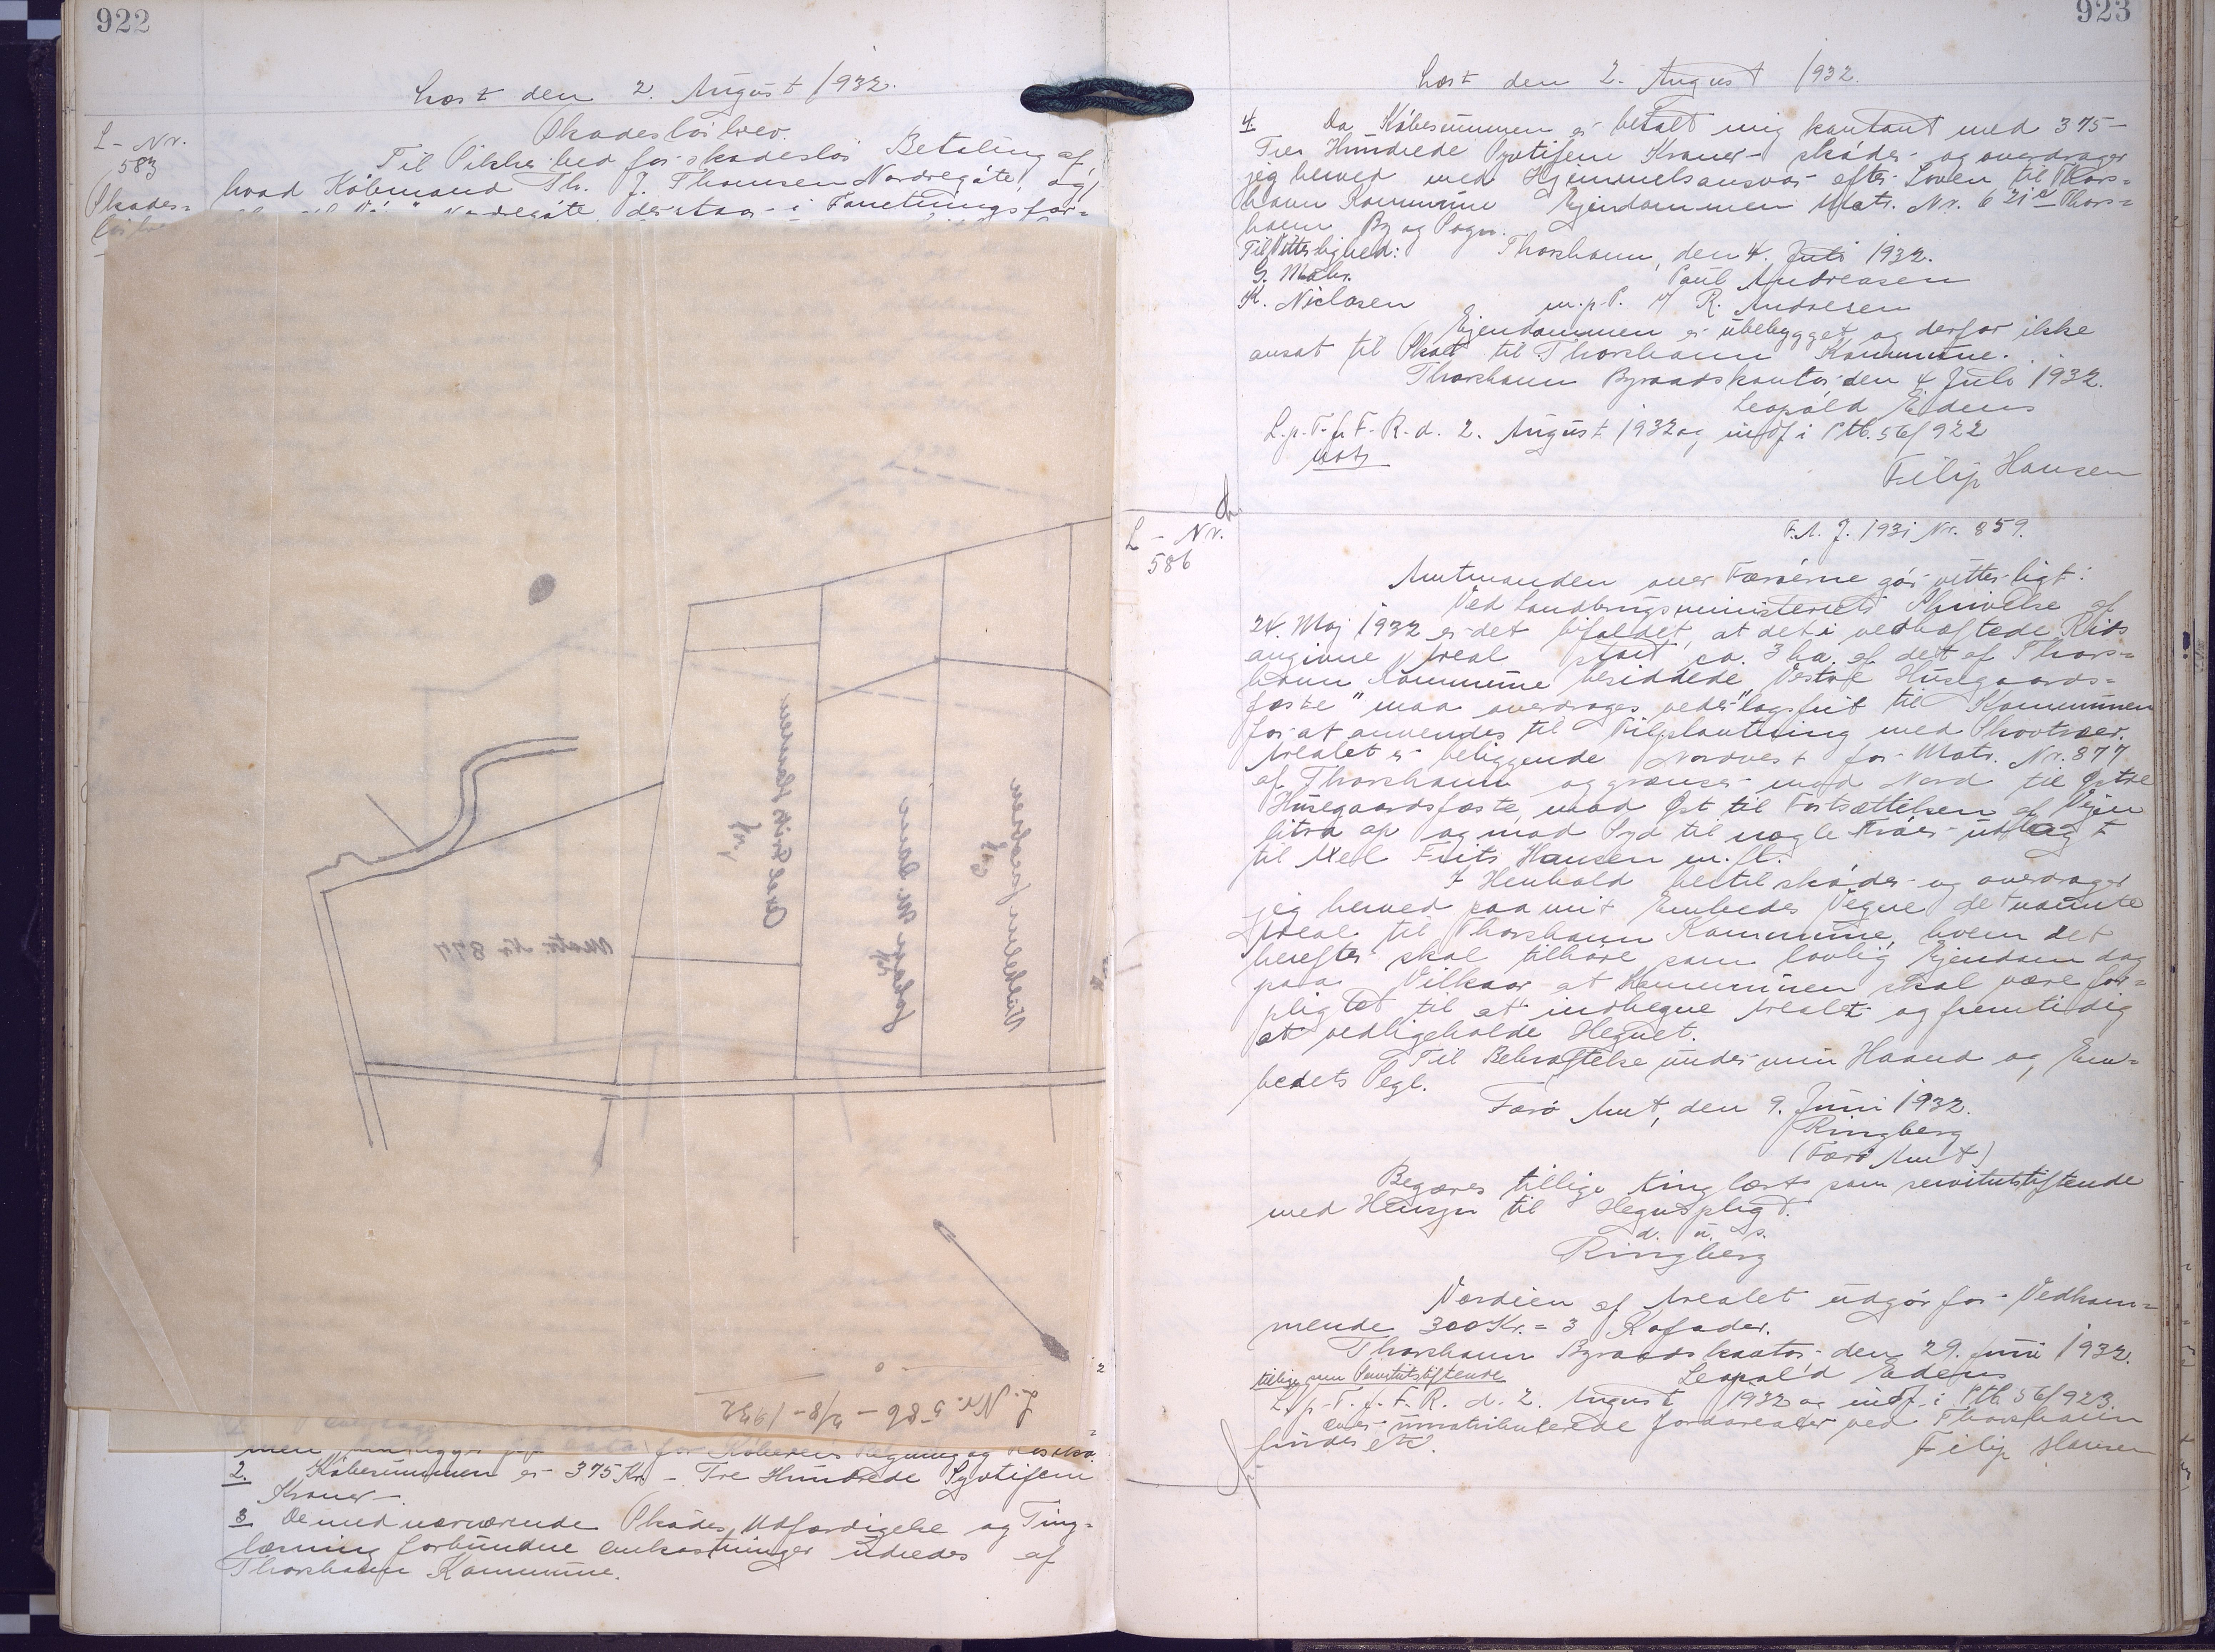 922
Læst den 2. August 1932.
L-Nr.
583
Skades=
Skadesløsbrev.
Til Sikkerhed for skadesløs Betaling af,
hvad Købmand Th. J. Thomsen Nordregøta, og
Nordregøta, der staar i Forretningsfor=
Matr. Nr 877
Axel Frits Hansen
Johan M. Dam
Vilhelm Jacobsen
L. Nr. 586 - 2/8 - 1932
for Køberens Regning og Risiko.
2. Købesummen er 375 Kr. - Tre Hundrede Syvtifem
Kroner -.
3 De med nærværende Skødes Udfærdigelse og Ting=
læsning forbundne Omkostninger udredes af
Thorshavn Kommune.
923
Læst den 2. August 1932.
4. Da Købesummen er betalt mig kontant med 375 -
Tre Hundrede Syvtifem Kroner - skøder og overdrager
jeg herved med Hjemmelsansvar efter Loven til Thors=
havn Kommune Ejendommen Matr. Nr. 621 Thors=
havn By og Sogn.
Til Vitterlighed: Thorshavn, den 4. Juli 1932.
G. Mohr. Poul Andreasen
K. Niclasen m.p.P. v/ R. Andresen
Ejendommen er ubebygget og derfor ikke
ansat til Skat til Thorshavn Kommune.
Thorshavn Byraadskontor den 4 Juli 1932.
Leopold
L.p.T.f.F.R.d. 2. August 1932 og indf i Ptb. 56/922
Filip Hansen
L-Nr.
586
F.A.J. 1931 Nr. 859.
Amtmanden over Færøerne gør vitterligt:
Ved Landbrugsministeriets Skrivelse af
24. Maj 1932 er det bifaldet, at det i vedhæftede Rids
angivne Areal stort ca. 3 ha. af det af Thors=
havn Kommune besiddede "Vestre Husegaards=
fæste" maa overdrages vederlagsfrit til Kommunen
for at anvendes til Tilplantning med Skovtræer.
Arealet er beliggende Nordvest for Matr. Nr. 877
af Thorshavn og grænser mod Nord til Østre
Husegaardsfæste, mod Øst til Fortsættelsen af Vejen
litra ap og mod Syd til nogle Trøer udlagt
til Axel Frits Hansen m. fl.
I Henhold hertil skøder og overdrager
jeg herved paa mit Embedes Vegne det nævnte
Areal til Thorshavn Kommune, hvem det
herefter skal tilhøre som lovlig Ejendom dog
paa Vilkaar at Kommunen skal være for=
pligtet til at indhegne Arealet og fremtidig
at vedligeholde Hegnet.
Til Bekræftelse under min Haand og Em=
bedets Segl.
Færø Amt, den 9. Juni 1932.
Ringberg
(Færø Amt)
Begæres tillige tinglæst som servitutstiftende
med Hensyn til Hegnspligt.
d. u. s.
Ringberg
Værdien af Arealet udgør for Vedkom=
mende 300 Kr. = 3
Thorshavn Byraadskontor den 29. Juni 1932.
tillige som Servitutstiftende Leopold
L.p.T.f.F.R.d. 2. August 1932 og indf. i Ptb 56/923.
Jordarealer ved Thorshavn
findes ek.
Filip Hansen